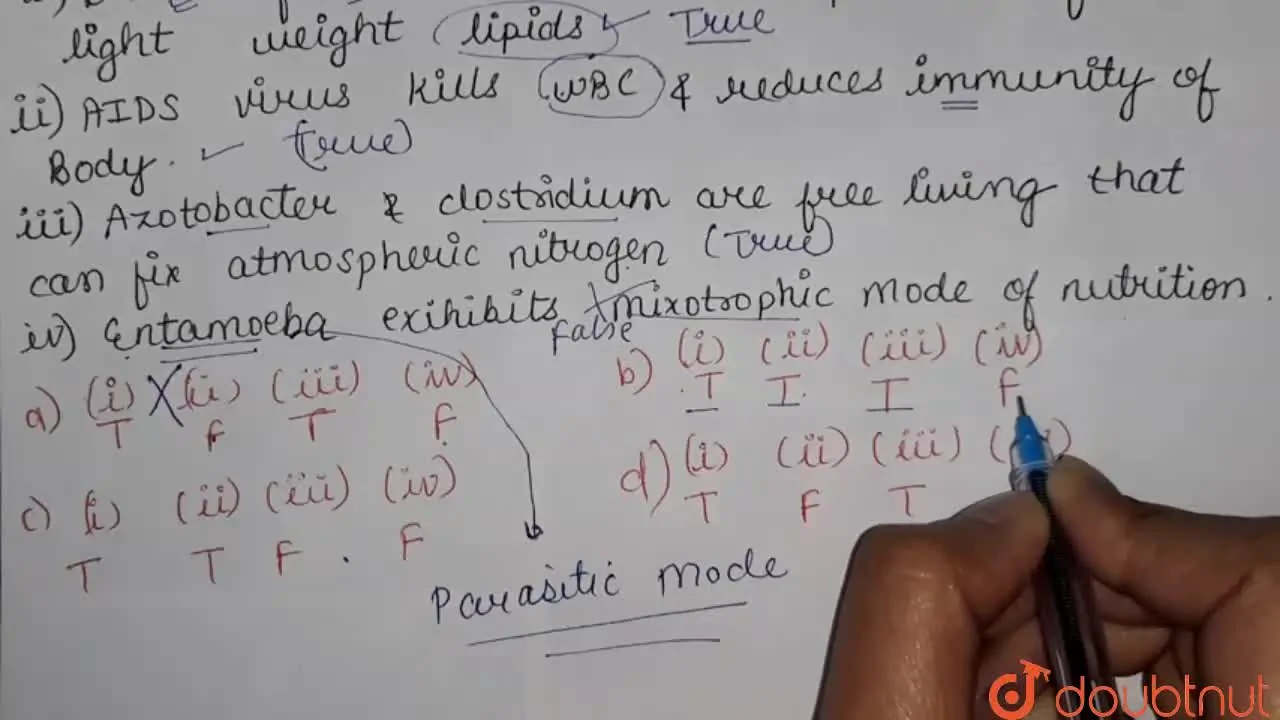 light weight lipids True
ii) AIDS virus kills WBC & reduces immunity of
Body. (true)
iii) Azotobacter & clostridium are free living that
can fix atmospheric nitrogen (True)
iv) Entamoeba exihibits mixotrophic mode of nutrition.
False
a) (i) (ii) (iii) (iv)
T F T F
b) (i) (ii) (iii) (iv)
T T T F
c) (i) (ii) (iii) (iv)
T T F F
d) (i) (ii) (iii)
T F T
Parasitic mode
doubtnut